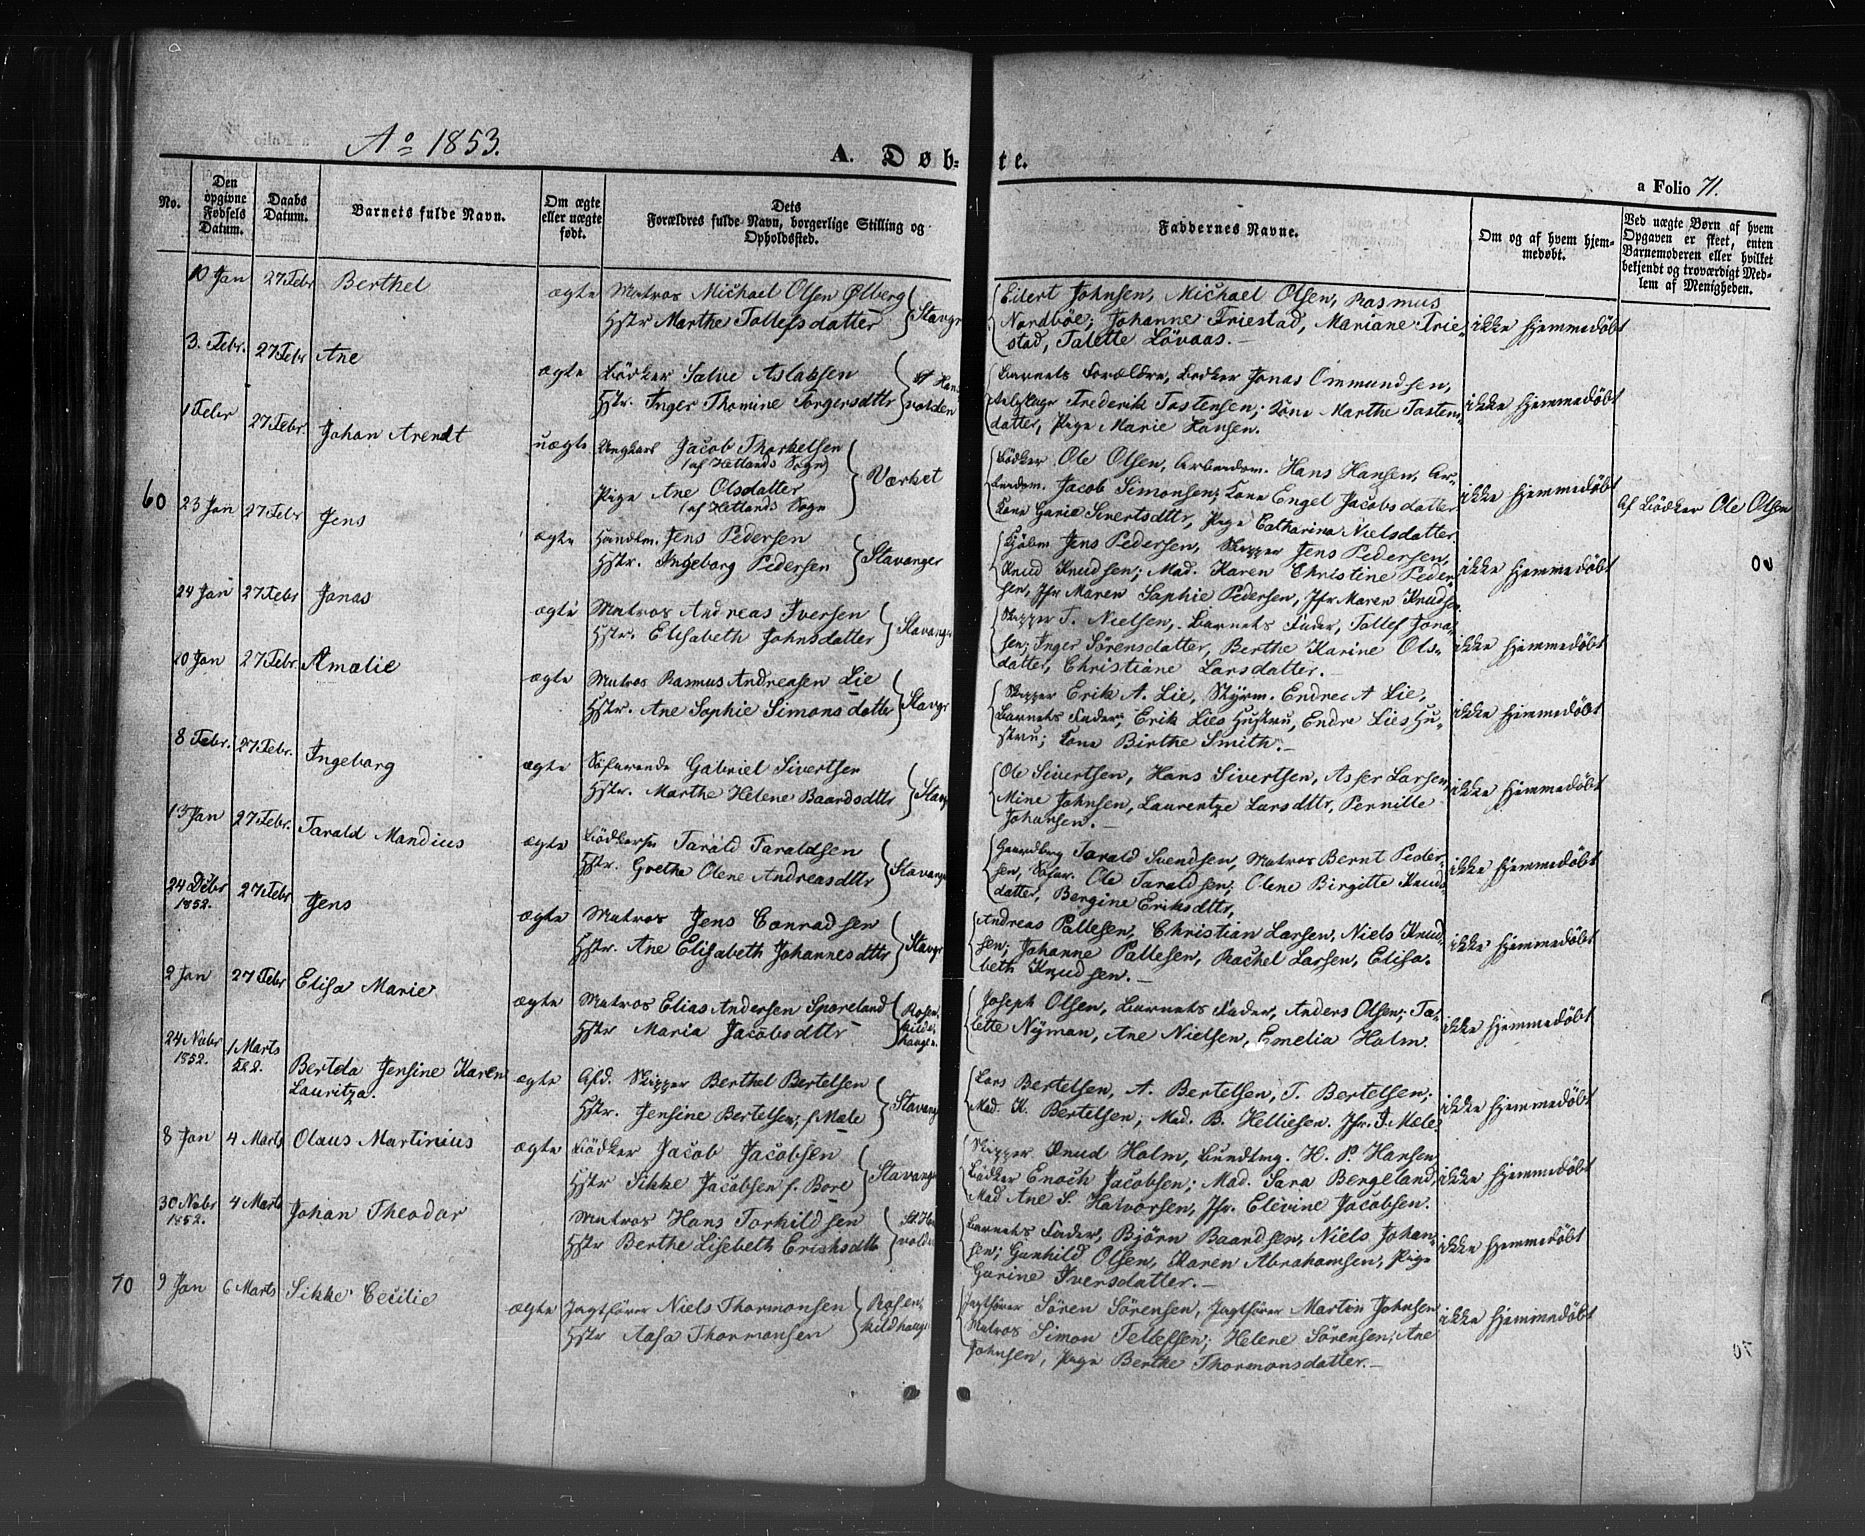 Aº 1853.
A. Døb- te.
a Folio 71.
No.
Den opgivne Fødsels Datum.
Daabs Datum.
Barnets fulde Navn.
Om ægte eller uægte født.
Dets Forældres fulde Navn, borgerlige Stilling og Opholdssted.
Faddernes Navne.
Om og af hvem hjemmedøbt.
Ved uægte Børn af hvem Opgaven er skeet, enten Barnemoderen eller hvilket bekjendt og troværdigt Medlem af Menigheden.
10 Jan 27 Febr Berthel ægte Matros Michael Olsen Ølberg
Hstr Marthe Tollefsdatter Stavgr
Eilert Johnsen, Michael Olsen, Rasmus
Nordbøe; Johanne Friestad, Mariane Frie-
stad, Talette Lövaas.
ikke hjemmedøbt
3. Febr. 27 Febr Ane ægte Bödker Salve Aslaksen
Hstr. Inger Thomine Torgersdttr St Hans volden
Barnets Forældre, Bödker Jonas Ommundsen,
Frederik Tostensen; Kone Marthe Tosten-
datter, Pige Marie Hansen.
ikke hjemmedøbt
1 Febr 27 Febr. Johan Arendt uægte Ungkarl Jacob Thorkelsen
(af Hetlands Sogn)
Pige Ane Olsdatter
(af Hetlands Sogn Værket
Bödker Ole Olsen, Arbeidsm. Hans Hansen, Ar-
beidsm. Jacob Simonsen; Kone Engel Jacobsdatter
Kone Garia Sivertsdttr, Pige Catharina Nielsdatter.
ikke hjemmedøbt
af Bödker Ole Olsen
60 23 Jan 27 Febr Jens ægte Handlm. Jens Pedersen
Hstr. Ingeborg Pedersen Stavanger
Kjøbm Jens Pedersen, Skipper Jens Pedersen,
Knud Knudsen; Mad. Karen Christine Peder-
sen, Jfr Maren Sophie Pedersen, Jfr Maren Knudsen
ikke hjemmedøbt
24 Jan 27 Febr Jonas ægte Matros Andreas Iversen
Hstr. Elisabeth Johnsdatter Stavanger
Skipper T. Nielsen, Barnets Fader, Tollef Jona-
sen; Inger Sörensdatter, Berthe Karine Ols-
datter, Christiane Larsdatter.
ikke hjemmedøbt
10 Jan 27 Febr. Amalie ægte Matros Rasmus Andreasen Lie
Hstr. Ane Sophie Simonsdatter Stavgr
Skipper Erik A. Lie, Styrm. Endre A Lie,
Barnets Fader; Erik Lies Hustru, Endre Lies Hu-
stru; Kone Birthe Smith.
ikke hjemmedøbt
8 Febr. 27 Febr. Ingeborg ægte Söfarende Gabriel Sivertsen
Hstr. Marthe Helene Baardsdttr Stavgr
Ole Sivertsen, Hans Sivertsen, Asser Larsen,
Mine Johnsen, Laurentze Larsdttr, Pernille
Johansen.
ikke hjemmedøbt
13 Jan 27 Febr. Tarald Mandius ægte Bödkersv Tarald Taraldsen
Hstr. Grethe Olene Andreasdttr Stavanger
Tarald Svendsen, Matros Bernt Peder-
sen, Söfar. Ole Taraldsen; Olene Birgitte Knuds
datter, Bergine Eriksdttr,
ikke hjemmedøbt
24 Debr 1852. 27 Febr Jens ægte Matros Jens Conradsen
Hstr. Ane Elisabeth Johannesdttr Stavgr
Andreas Pallesen, Christian Larsen, Niels Knud-
sen; Johanne Pallesen, Rachel Larsen, Elisa-
beth Knudsen.
ikke hjemmedøbt
2 Jan 27 Febr Elisa Marie ægte Matros Elias Andersen Sporeland
Hstr Maria Jacobsdttr Rosenkildehaugen
Joseph Olsen, Barnets Fader, Anders Olsen; Ta-
lette Nyman, Ane Nielsen, Emelia Holm.
ikke hjemmedøbt
24 Nvbr 1852. 1 Marts Bertda Jensine Karen
Lauritza. ægte Afd. Skipper Berthel Bertelsen
Hstr. Jensine Bertelsen; f. Mæle Stavanger
Lars Bertelsen, A. Bertelsen, T. Bertelsen;
Mad. K. Bertelsen; Mad. B. Helliesen. Jfr. J. Mæle
ikke hjemmedøbt
8 Jan 4 Marts Olaus Martinius ægte Bödker Jacob Jacobsen
Hstr Sikke Jacobsen f. Bore Stavanger
Skipper Knud Holm, Bundtmg. H. P. Hansen
Bödker Enoch Jacobsen; Mad. Sara Bergeland,
Mad Ane S. Halvorsen, Jfr. Elevine Jacobsen.
ikke hjemmedøbt
30 Nvbr 1852. 4 Marts Johan Theodor
Matros Hans Torkildsen
Hstr Berthe Lisebeth Eriksdttr St. Hans volden
Barnets Fader, Björn Baardsen, Niels Johan-
sen; Gunhild Olsen, Karen Abrahamsen, Pige
Gurine Iversdatter.
ikke hjemmedøbt
70 9 Jan 6 Marts Sikke Cecilie ægte Jagtfører Niels Thormonsen
Hstr Aasa Thormonsen Rosenkildhaugen
Jagtfører Sören Sörensen, Jagtfører Martin Johnsen
Matros Simon Tellefsen; Helene Sörensen; Ane
Johnsen, Pige Berthe Thormonsdatter.
ikke hjemmedøbt